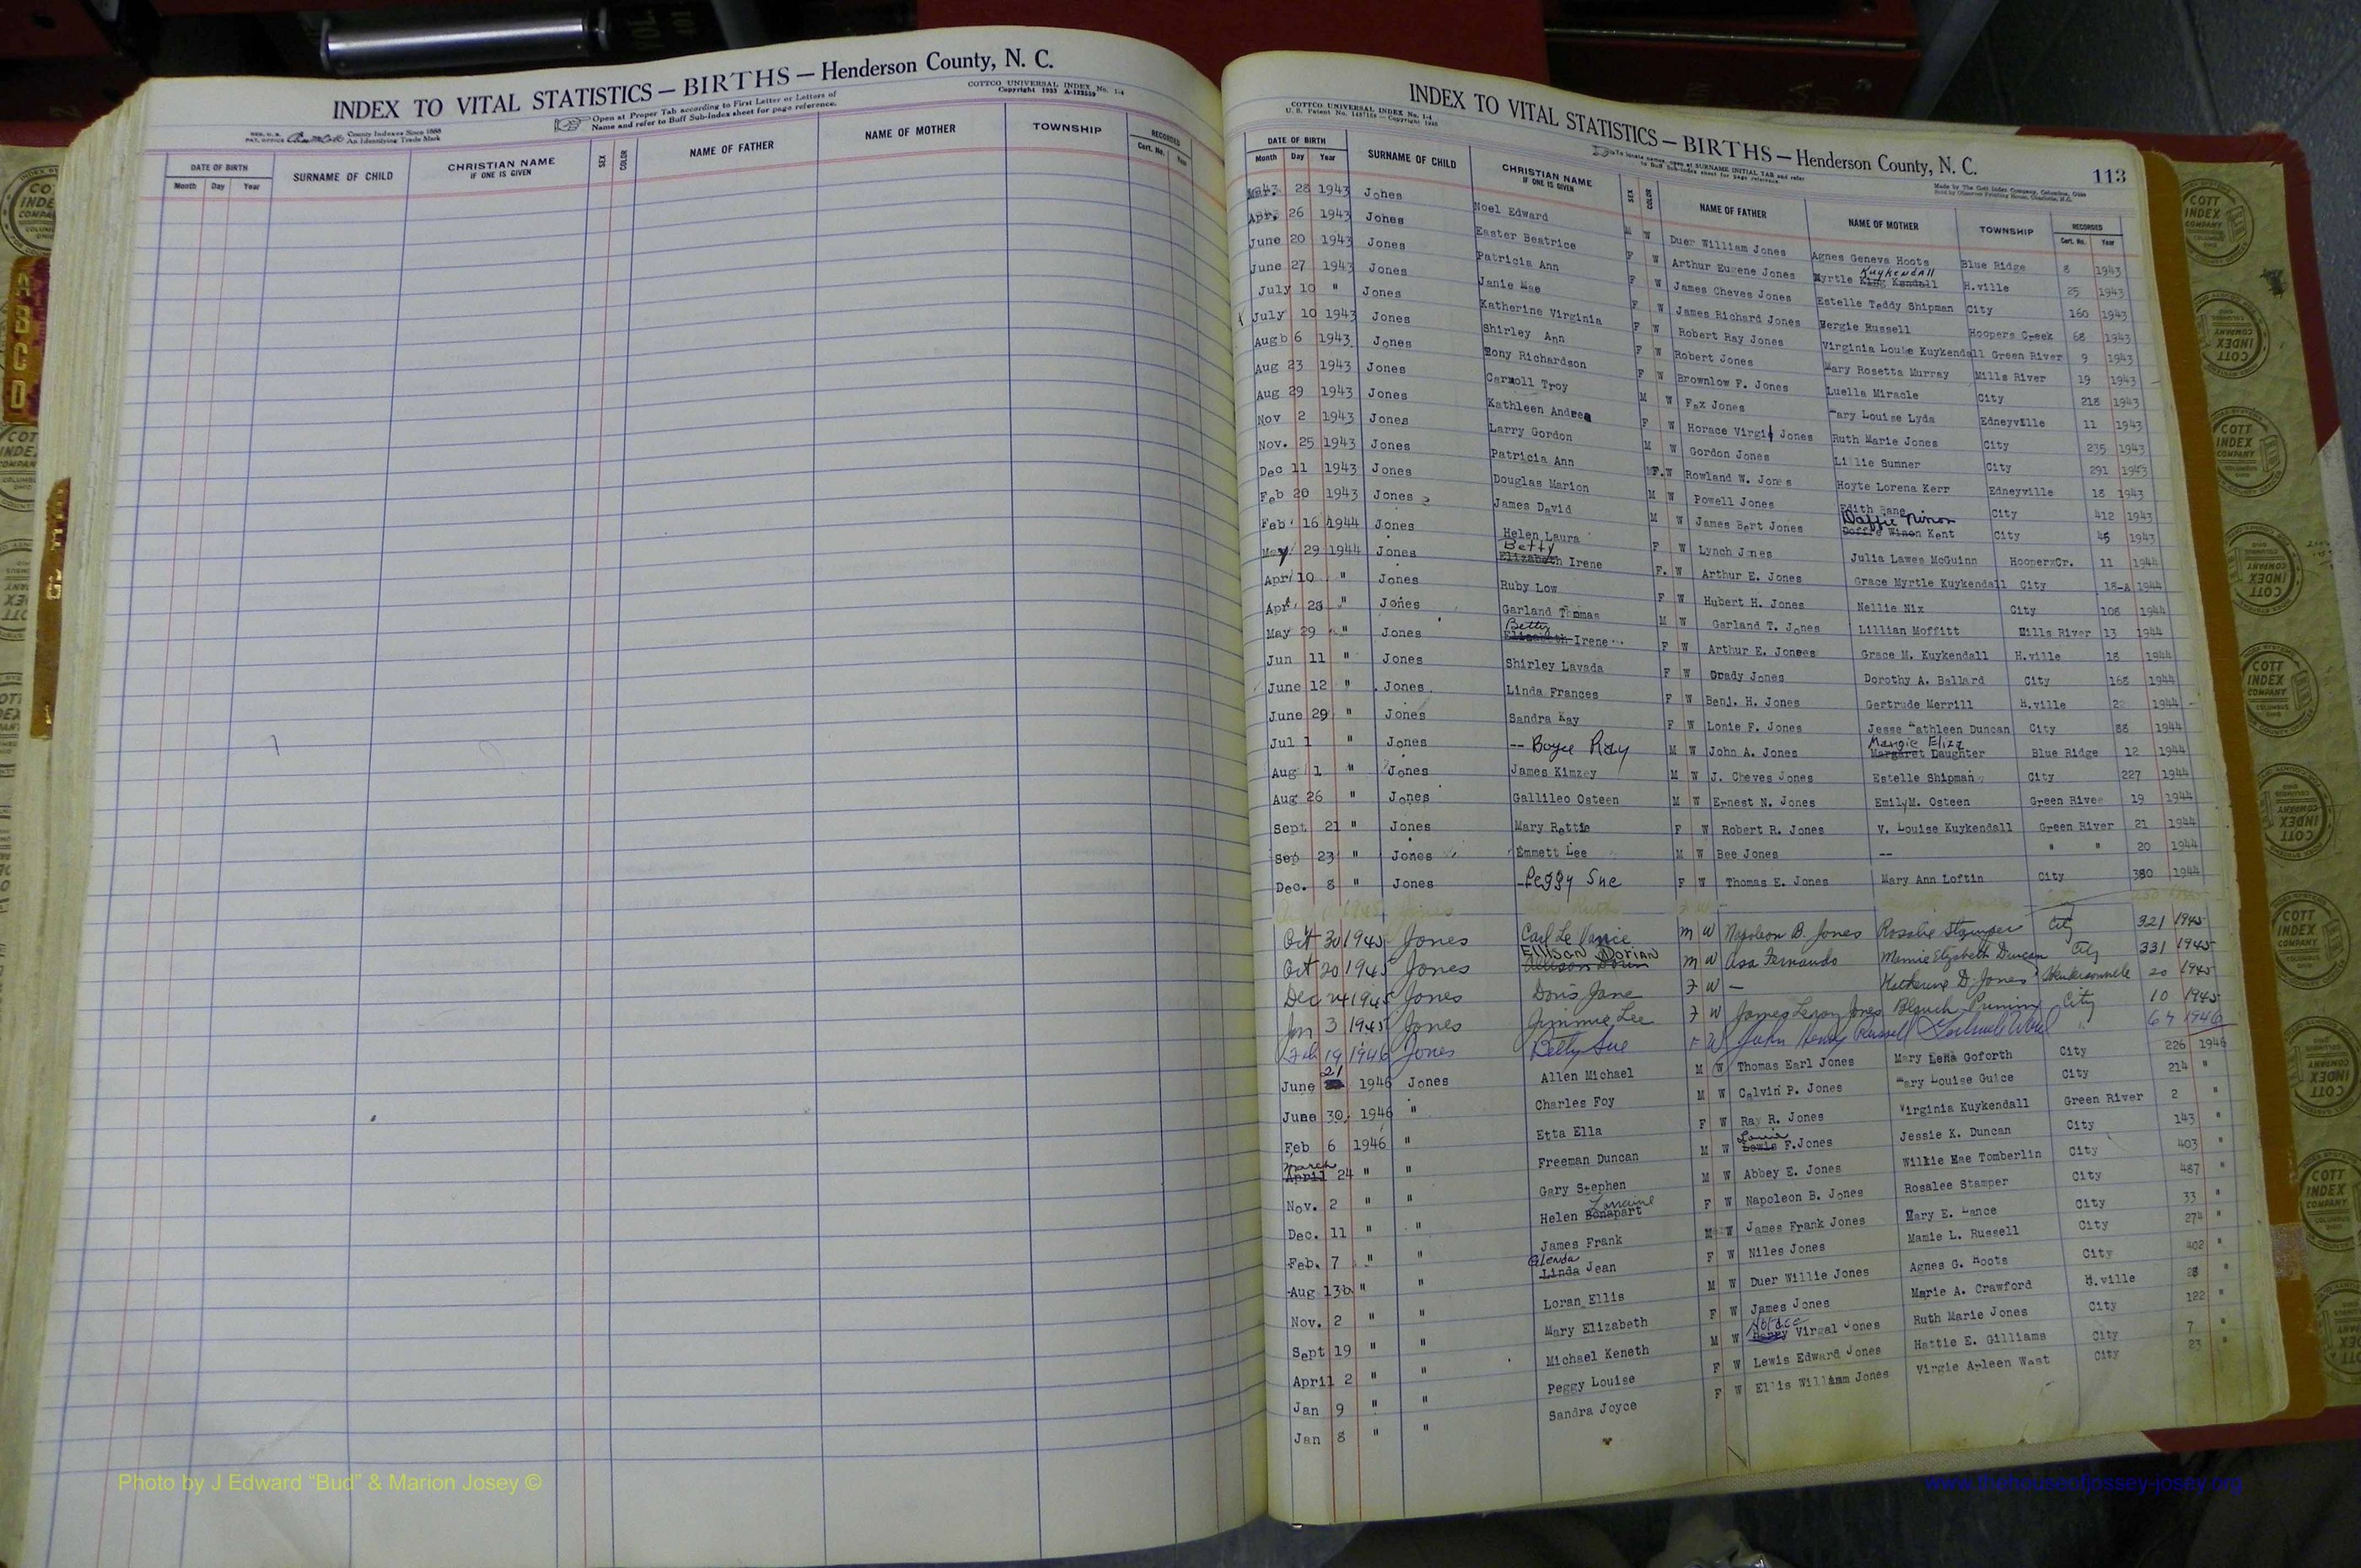 INDEX TO VITAL STATISTICS — BIRTHS — Henderson County, N. C.
COTTCO UNIVERSAL INDEX No. 1-4
Open at Proper Tab according to First Letter or Letters of
Name and refer to Buff Sub-Index sheet for page reference.
County Indexes Since 1888
An Identifying Trade Mark
DATE OF BIRTH SURNAME OF CHILD CHRISTIAN NAME IF ONE IS GIVEN SEX COLOR NAME OF FATHER NAME OF MOTHER TOWNSHIP RECORDED
Month Day Year Cert. No. Year
INDEX TO VITAL STATISTICS — BIRTHS — Henderson County, N. C.
113
COTTCO UNIVERSAL INDEX No. 1-4
DATE OF BIRTH SURNAME OF CHILD CHRISTIAN NAME IF ONE IS GIVEN SEX COLOR NAME OF FATHER NAME OF MOTHER TOWNSHIP RECORDED
Month Day Year Cert. No. Year
28 1943 Jones Noel Edward M W Duer William Jones Agnes Geneva Hoots Blue Ridge 8 1943
Apr. 26 1943 Jones Easter Beatrice F W Arthur Eugene Jones Myrtle Kuykendall H.ville 25 1943
June 20 1943 Jones Patricia Ann F W James Cheves Jones Estelle Teddy Shipman City 160 1943
June 27 1943 Jones Janie Mae F W James Richard Jones Mergie Russell Hoopers Creek 68 1943
July 10 " Jones Katherine Virginia F W Robert Ray Jones Virginia Louise Kuykendall Green River 9 1943
July 10 1943 Jones Shirley Ann F W Robert Jones Mary Rosetta Murray Mills River 19 1943
Aug 6 1943 Jones Richardson F W Brownlow F. Jones Luella Miracle City 218 1943
Aug 23 1943 Jones Carroll Troy M W Fax Jones Mary Louise Lyda Edneyville 11 1943
Aug 29 1943 Jones Kathleen Andrea F W Horace Virgil Jones Ruth Marie Jones City 235 1943
Nov 2 1943 Jones Larry Gordon M W Gordon Jones Lillie Sumner City 291 1943
Nov. 25 1943 Jones Patricia Ann F. W Rowland W. Jones Hoyte Lorena Kerr Edneyville 18 1943
Dec 11 1943 Jones Douglas Marion M W Powell Jones Edith City 412 1943
Feb 20 1943 Jones James David M W James Bert Jones Daffie Ninon Kent City 45 1943
Feb 16 1944 Jones Helen Laura F W Lynch Jones Julia Lawes McGuinn HooperxCr. 11 1944
May 29 1944 Jones Betty Elizabeth Irene F. W Arthur E. Jones Grace Myrtle Kuykendall City 18-A 1944
Apr 10 " Jones Ruby Low F W Hubert H. Jones Nellie Nix City 108 1944
Apr. 28 " Jones Garland Thomas M W Garland T. Jones Lillian Moffitt Mills River 13 1944
May 29 " Jones Betty Elizabeth Irene F W Arthur E. Jones Grace M. Kuykendall H.ville 18 1944
Jun 11 " Jones Shirley Lavada F W Grady Jones Dorothy A. Ballard City 168 1944
June 12 " Jones Linda Frances F W Benj. H. Jones Gertrude Merrill H.ville 1944
June 29 " Jones Sandra Kay F W Lonie F. Jones Jesse Kathleen Duncan City 88 1944
Jul 1 " Jones -- Boyce Ray M W John A. Jones Margie Eliza Margaret Daughter Blue Ridge 12 1944
Aug 1 " Jones James Kimzey M W J. Cheves Jones Estelle Shipman City 227 1944
Aug 26 " Jones Gallileo Osteen M W Ernest N. Jones Emily M. Osteen Green River 19 1944
Sept 21 " Jones Mary Rettie F W Robert R. Jones V. Louise Kuykendall Green River 21 1944
Sep 23 " Jones Emmett Lee M W Bee Jones -- " " 20 1944
Dec. 8 " Jones Peggy Sue F W Thomas E. Jones Mary Ann Loftin City 380 1944
Oct 30 1945 Jones Carl Le Vance M W Napoleon B. Jones Rosalie Stamper City 321 1945
Oct 20 1945 Jones Ellison Dorian M W Asa Fernando Mamie Elizabeth Duncan City 331 1945
Dec 24 1945 Jones Doris Jane F W — Katherine D. Jones Hendersonville 20 1945
Jan 3 1945 Jones Jimmie Lee F W James Leroy Jones City 10 1945
Feb 19 1946 Jones Betty Sue F W John Henry Russell " 67 1946
June 21 1946 Jones Allen Michael M W Thomas Earl Jones Mary Lena Goforth City 226 1946
June 30, 1946 " Charles Foy M W Calvin P. Jones Mary Louise Guice City 214 "
Feb 6 1946 " Etta Ella F W Ray R. Jones Virginia Kuykendall Green River 2 "
March April 24 " " Freeman Duncan M W Lonie Lewis F.Jones Jessie K. Duncan City 143 "
Nov. 2 " " Gary Stephen M W Abbey E. Jones Willie Mae Tomberlin City 403 "
Dec. 11 " " Helen Lorraine Bonapart F W Napoleon B. Jones Rosalee Stamper City 487 "
Feb. 7 " " James Frank M W James Frank Jones Mary E. Lance City 33 "
Aug 13 " " Glenda Linda Jean F W Niles Jones Mamie L. Russell City 274 "
Nov. 2 " " Loran Ellis M W Duer Willie Jones Agnes G. Hoots City 402 "
Sept 19 " " Mary Elizabeth F W James Jones Marie A. Crawford H.ville 28 "
April 2 " " Michael Keneth M W Horace Virgal Jones Ruth Marie Jones City 122 "
Jan 9 " " Peggy Louise F W Lewis Edward Jones Hattie E. Gilliams City 7 "
Jan 8 " " Sandra Joyce F W Ellis William Jones Virgie Arleen West City 23 "
Photo by J Edward “Bud” & Marion Josey ©
www.thehouseofjossey-josey.org